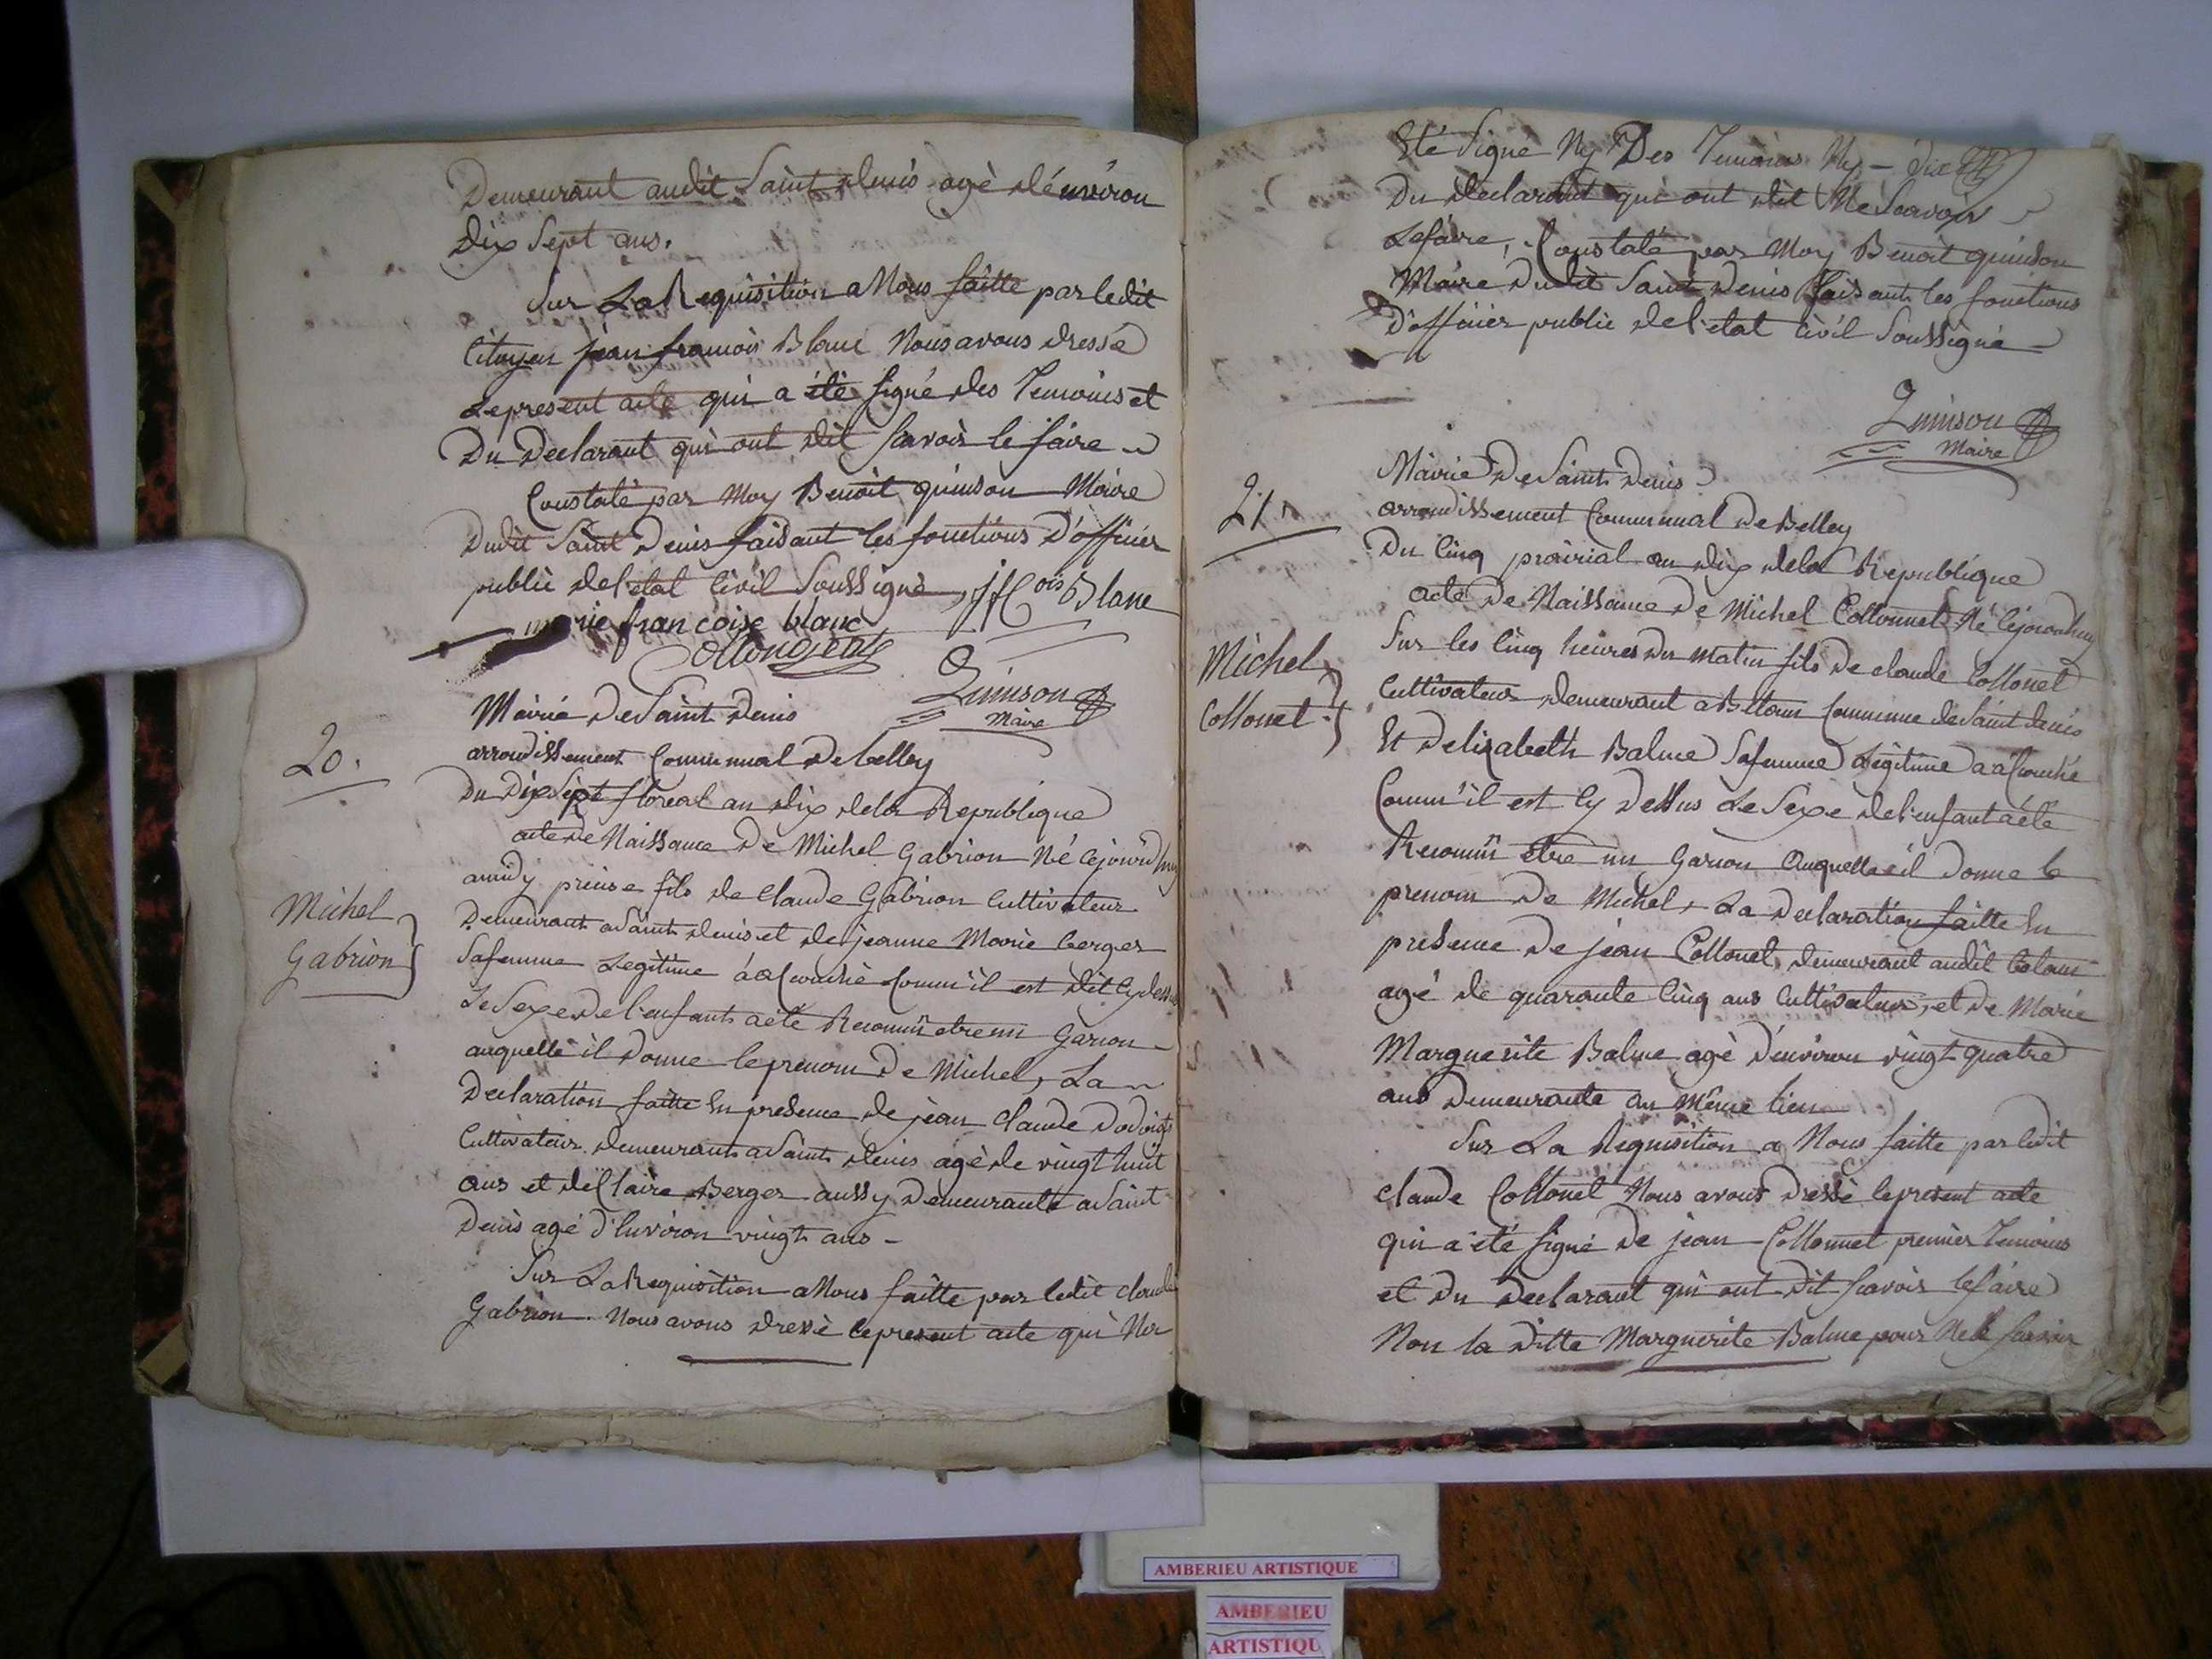 Demeurant audit Saint denis agè d'énviron
Dix Sept ans.
Sur La Requisition a Nous faitte par ledit
Citoyen jean francois Blanc Nous avons dressé
Le present acte qui a été signé des Temoins et
Du Declarant qui ont dit scavoir le faire
Constaté par Moy Benoit quinson Maire
Dudit Saint Denis faisant les fonctions D'officier
public de l'etat Civil Soussigné, jf cois Blanc
marie francoise blanc
Quinson
Maire
20.
Mairie De Saint Denis
arrondissement Communal de belley
Du Dix Sept floreal an dix de la Republique
acte De Naissance De Michel Gabrion Né cejourd'huy
Michel
Gabrion
amidy precise fils de Claude Gabrion Cultivateur
Demeurant a Saint denis et de jeanne Marie berger
Safemme Legitime áacouché Comm'il est dit Cydessus
Le Sexe de l'enfant aété Reconnu etre un Garcon
auquelle il Donne le prenom De Michel, La
Declaration faitte En presence de jean Claude
Cultivateur demeurant a Saint denis agè de vingt huit
ans et de Claire Berger aussy Demeurante a Saint
Denis agé d'Environ vingt ans -
Sur La Requisition a Nous faitte par ledit claude
Gabrion Nous avons dressè le present acte qui Na
Eté Signé Ny Des Temoins Ny -
Du declarant qui ont dit Ne Scavoir
Lefaire, Constaté par Moy Benoit quinson
Maire Dudit Saint Denis faisant les fonctions
D'officier public de l'etat Civil Soussigné
Quinson
Maire
21.
Mairie De Saint Denis
arrondissement Communal De Belley
Du Cinq prairial an dix dela Republique
acte De Naissance De Michel Collonnet Né Cejourdhuy
Sur les Cinq heures du matin fils De claude Collonet
Michel
Collonet
Cultivateur demeurant a Commune de Saint denis
Et delizabeth Balme Safemme Légitime aàcouché
Comm'il est Cy Dessus Le Sexe de l'enfant aété
Reconnü etre un Garcon Auquelle il Donne le
prenom De Michel, La declaration faitte En
presence De jean Collonet, demeurant audit
agé de quarante Cinq ans Cultivateur, et De Marie
Marguerite Balme agé D'environ vingt quatre
ans Demeurante au même lieu
Sur La Requisition a Nous faitte par ledit
claude Collonet Nous avons dressè le present acte
qui a été signé De jean Collonnet premier Temoins
et Du Declarant qui ont dit scavoir le faire
Non la ditte Marguerite Balme pour Ne le scavoir
AMBERIEU ARTISTIQUE
AMBERIEU
ARTISTIQU